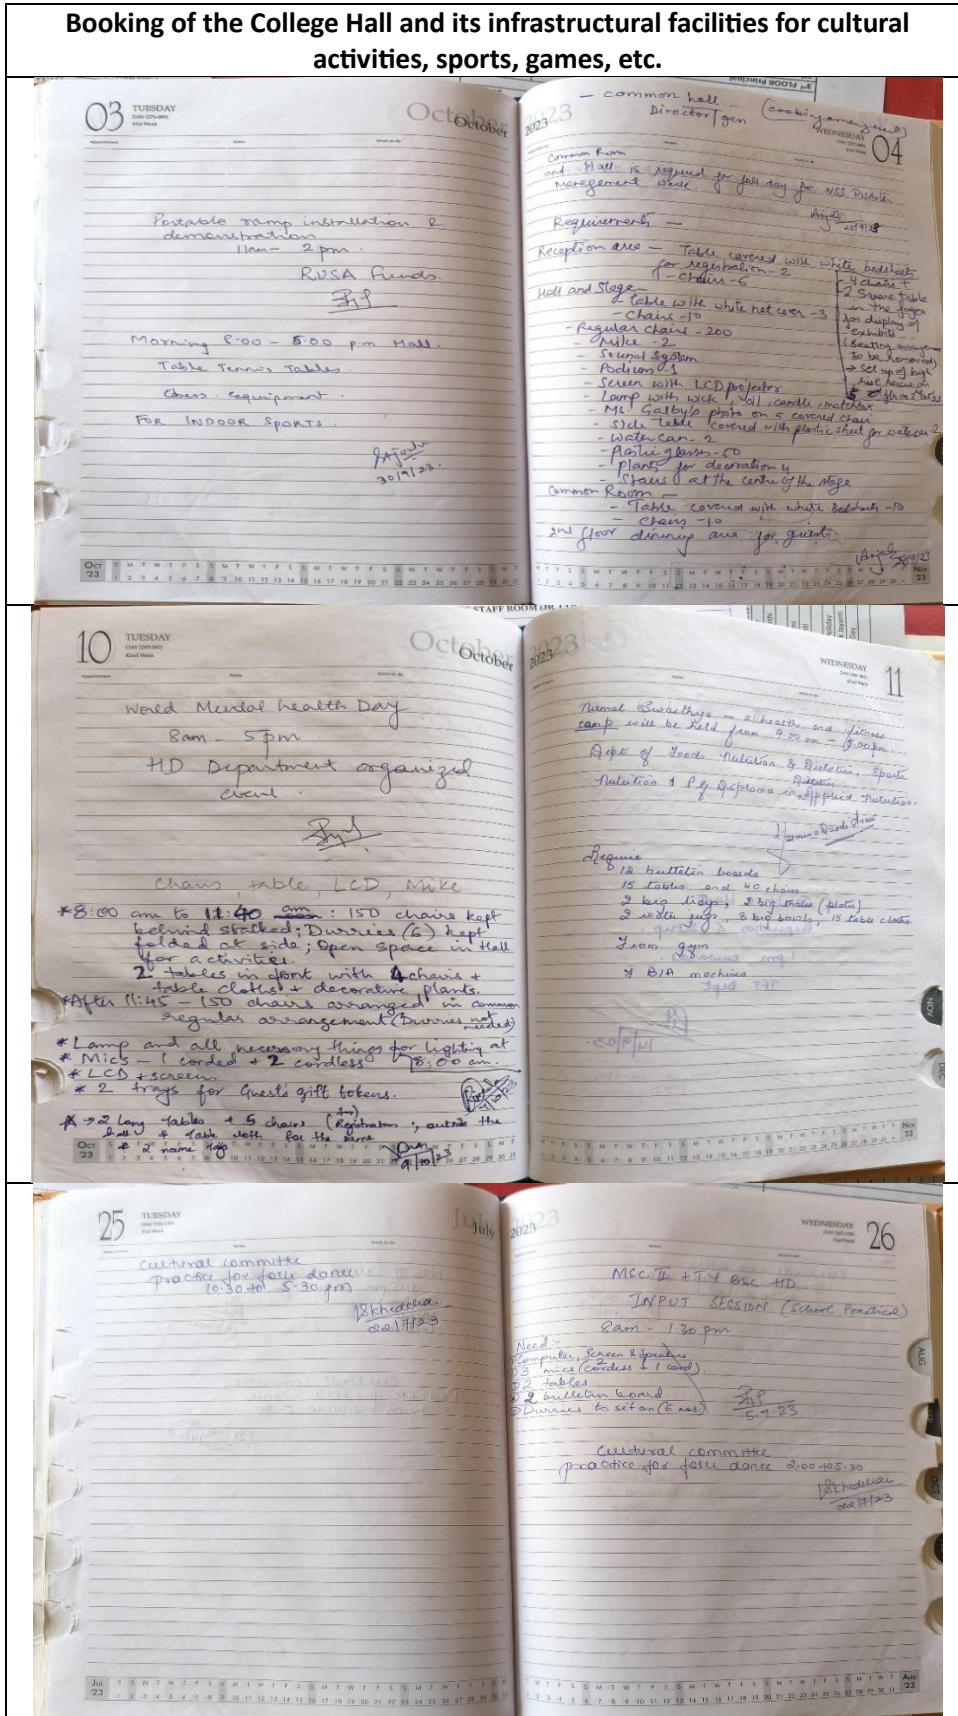 Booking of the College Hall and its infrastructural facilities for cultural
activities, sports, games, etc.
03
TUESDAY
October
October
Portable ramp installation &
demonstration
11am - 2 pm.
RUSA Funds.
Morning 8:00 - 5:00 pm Hall.
Table Tennis Tables.
Chess equipment.
FOR INDOOR SPORTS.
30/9/23.
Oct
'23
2023
WEDNESDAY
04
- Common hall -
Director/gen
Common Room
and Hall is required for full day for NSS Disaster
Management work.
Requirements -
Reception area - Table covered with white bedsheets
for registration - 2
- Chairs - 6
Hall and Stage -
- Table with white net cover - 3
- Chairs - 10
- Regular chairs - 200
- Mike - 2
- Sound System
- Podium - 1
- Screen with LCD projector
- Lamp with wick, oil, candle, matchbox
- Ms. photo on a covered chair
- Side table covered with plastic sheet for watercan - 2
- Water can - 2
- Plastic glasses - 50
- Plants for decoration 4
- Stairs at the centre of the stage
4 chairs +
2 Square table
in the foyer
for display of
exhibits
(Seating
to be removed)
→ set up of high
Common Room -
- Table covered with white bedsheets - 10
- Chairs - 10
2nd floor dining area for guests
Nov
'23
STAFF ROOM
10
TUESDAY
October
October
World Mental health Day
8am - 5pm
HD Department organized
event.
Chairs, table, LCD, Mike
* 8:00 am to 11:40 am : 150 chairs kept
behind stacked; Durries (6) kept
folded at side; Open space in Hall
for activities.
2 tables in front with 4 chairs +
table cloths + decorative plants.
* After 11:45 - 150 chairs arranged in common
regular arrangement (Durries not
needed)
* Lamp and all necessary things for lighting at
8:00 am.
* Mics - 1 corded + 2 cordless
* LCD + screen
* 2 trays for Guest's gift tokens.
* → 2 Long tables + 5 chairs (Registration), outside the
hall + table cloth for the same
* 2 name tags
9/10/23
Oct
'23
2023
WEDNESDAY
11
Nirmal Swasthya - a health and fitness
camp will be held from 9.00 am - 5.00 pm.
Dept of Foods Nutrition & Dietetics, Sports
Nutrition & P g Diploma in Applied Nutrition.
Dietetics
Require
12 bulletin boards
15 tables and 40 chairs
2 big trays, 2 big thalis (plate)
2 water jugs, 3 big bowls, 15 table cloths
From gym
BIA machines
NOV
Nov
'23
25
TUESDAY
July
July
Cultural committee
practice for folk dance
10.30 to 5.30 pm
22/7/23
Jul
'23
2023
WEDNESDAY
26
MSC II + T.Y BSC HD
INPUT SESSION (School Practical)
8am - 1.30 pm
Need:-
Computer, Screen & Speaker
3 mics (2 cordless + 1 cord).
2 tables
2 bulletin board
Durries to sit on (6 nos)
5.7.23
Cultural committee
practice for folk dance 2.00 to 5.30
22/7/23
AUG
OCT
Aug
'23